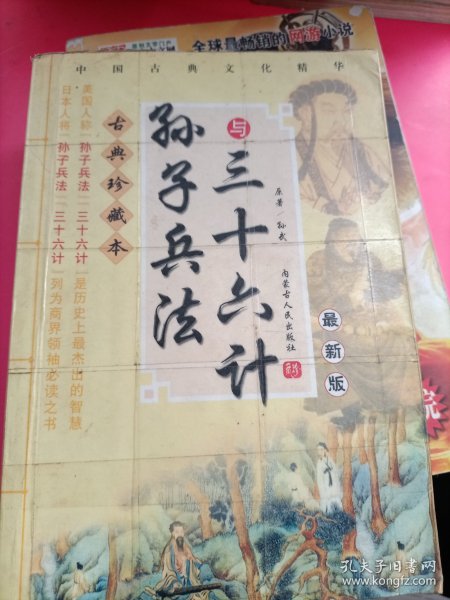 全球最畅销的网游小说
中国古典文化精华
美国人称「孙子兵法」「三十六计」是历史上最杰出的智慧
日本人将「孙子兵法」「三十六计」列为商界领袖必读之书
古典珍藏本
孙子兵法
与
三十六计
原著/孙武
内蒙古人民出版社
最新版
院
孔夫子旧书网
www.kongfz.com